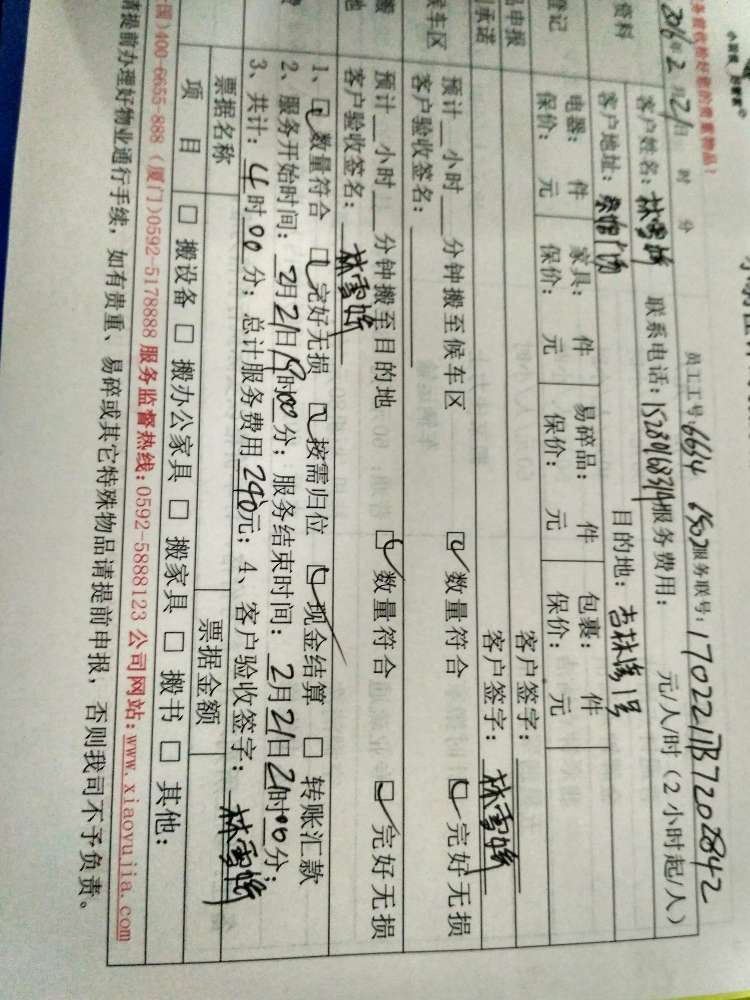 员工工号: 6654 服务联号: 170221JB7202842
2016年2月21日 时 分
资料
客户姓名: 林雪娇 联系电话: 服务费用: 元/人/时(2小时起/人)
客户地址: 目的地: 吉林
登记
电器: 件 家具: 件 易碎品: 件 包裹: 件
保价: 元 保价: 元 保价: 元 保价: 元
品申报 客户签字:
承诺 客户签字: 林雪娇
候车区
预计__小时__分钟搬至候车区 ☑数量符合 ☑完好无损
客户验收签名:
搬
地
预计__小时__分钟搬至目的地 ☑数量符合 ☑完好无损
客户验收签名: 林雪娇
费
1、☑数量符合 ☑完好无损 ☑按需归位 ☑现金结算 □转账汇款
2、服务开始时间: 2月21日19时00分; 服务结束时间: 2月21日21时00分;
3、共计: 4时00分; 总计服务费用240元; 4、客户验收签字: 林雪娇
票据名称 票据金额
项 目 □搬设备 □搬办公家具 □搬家具 □搬书 □其他:
国)400-6655-888(厦门)0592-5178888 服务监督热线:0592-5888123 公司网站:www.xiaoyujia.com
请提前办理好物业通行手续, 如有贵重、易碎或其它特殊物品请提前申报, 否则我司不予负责。